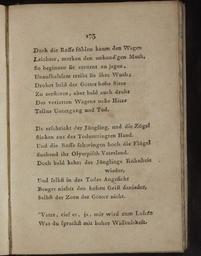 173
Doch die Rosse fühlen kaum den Wagen
Leichter, merken den unkund'gen Muth,
So beginnen sie erzürnt zu jagen,
Unaufhaltsam treibt sie ihre Wuth;
Drohet bald der Götter hohe Sitze
Zu zerstören, aber bald auch droht
Des verirrten Wagens nahe Hitze
Tellus Untergang und Tod.
Da erschrickt der Jüngling, und die Zügel
Sinken aus der Hand,
Und die Rosse schwingen hoch die Flügel
Suchend ihr Olympisch Vaterland.
Doch bald kehrt des Jünglings Kühnheit
wieder,
Und selbst in des Todes Angesicht
Beuget nichts den hohen Geist darnieder,
Selbst der Zorn der Götter nicht.
"Vater, rief er, ja, mir wird zum
Was du sprachst mit hoher